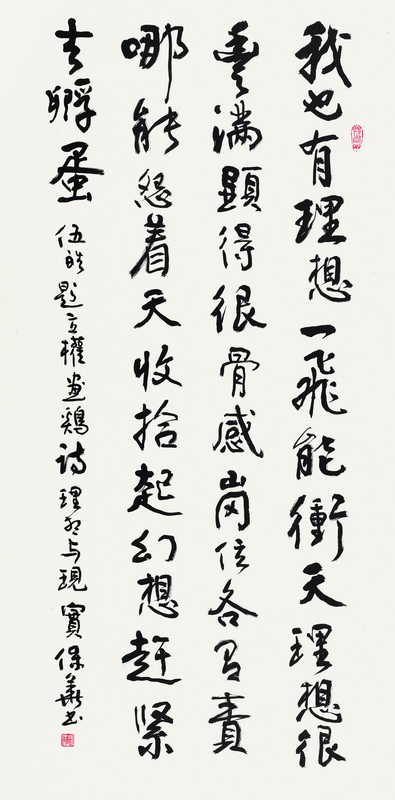 我也有理想一飛能衝天理想很
豐滿顯得很骨感崗位各有責
哪能怨着天收拾起幻想趕緊
去孵蛋 伍皓題立權畫鷄詩理想与現實保華书